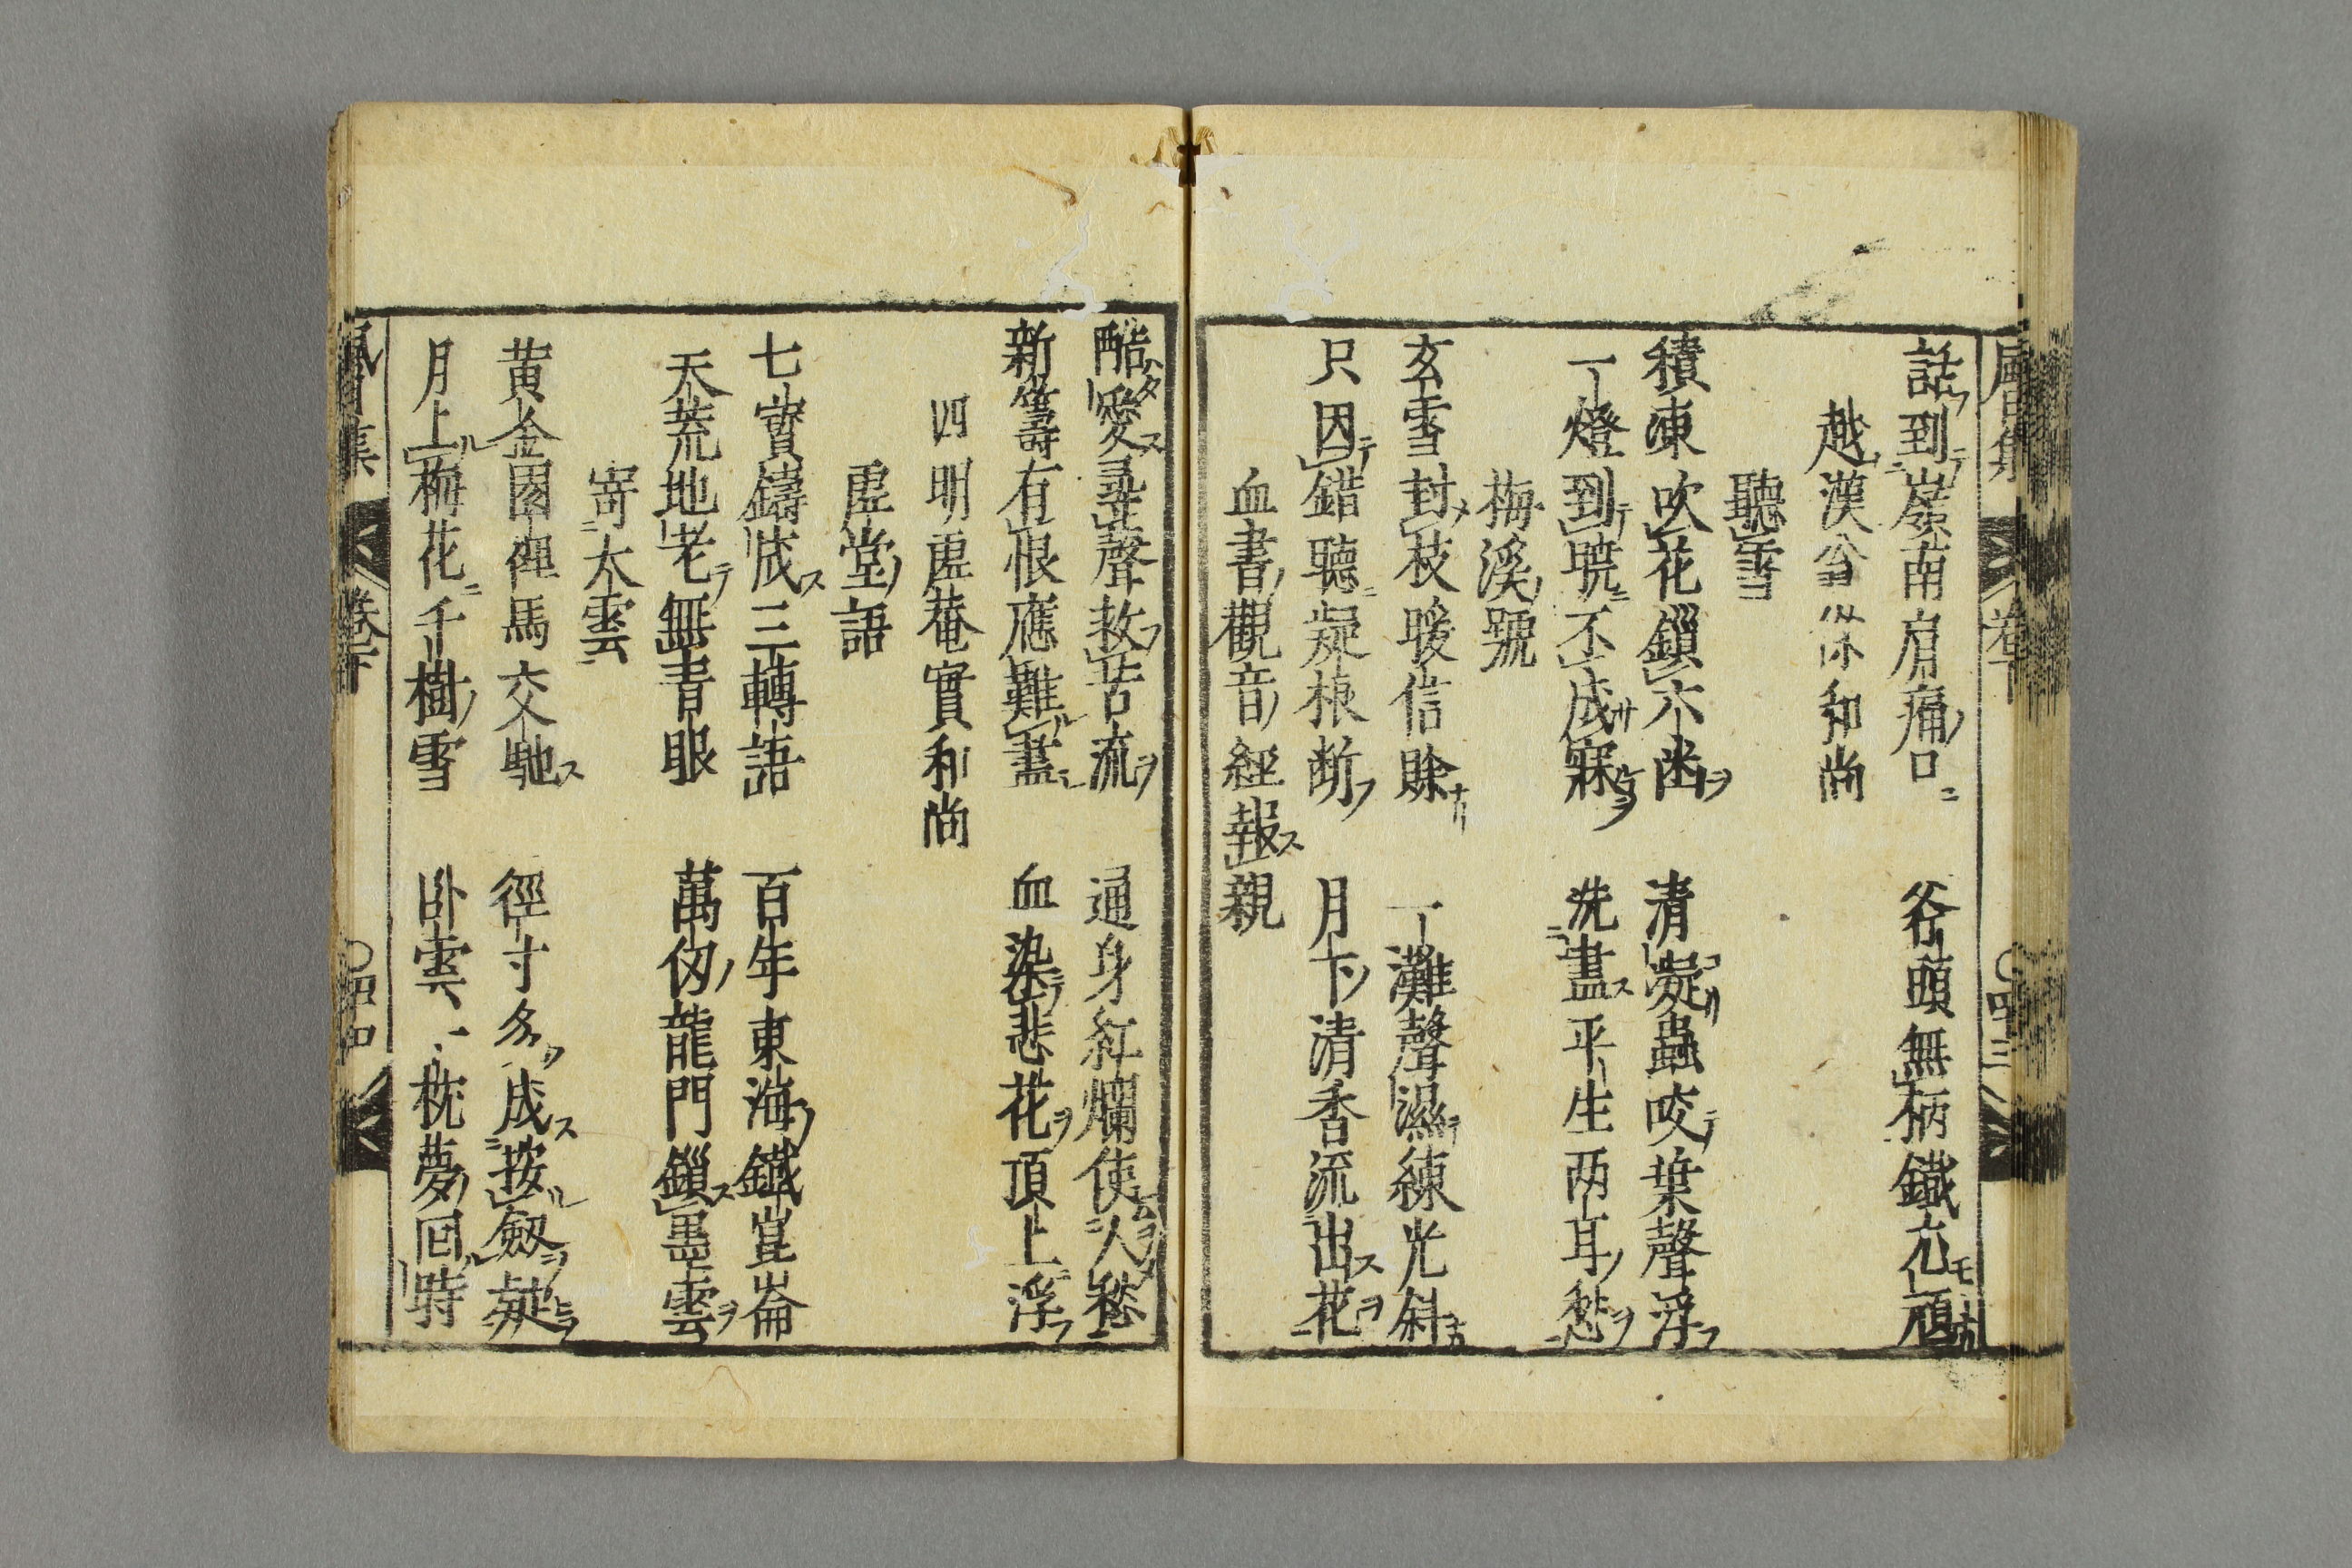 話到嶺南肩痛口 斧頭無柄鐵充頑
越漢翁 和尚
聽雪
積凍吹花鎖六凾 清凝蟲咬葉聲浮
一燈到暁不成寐 洗盡平生两耳愁
梅溪號
玄雪封枝暖信賖 一灘聲濕練光斜
只因錯聽凝根断 月下清香流出花
血書觀音經報親
酷愛尋聲救苦流 通身紅爛使人愁
新籌有恨應難盡 血染悲花頂上浮
四明虛菴實和尚
虛堂語
七寳鑄成三轉語 百年東海鐵崑崙
天荒地老無青眼 萬仭龍門鎖墨雲
寄太雲
黄金園裡馬交馳 徑寸多成按劔疑
月上梅花千樹雪 卧雲一枕夢回時
集 卷下 四十四